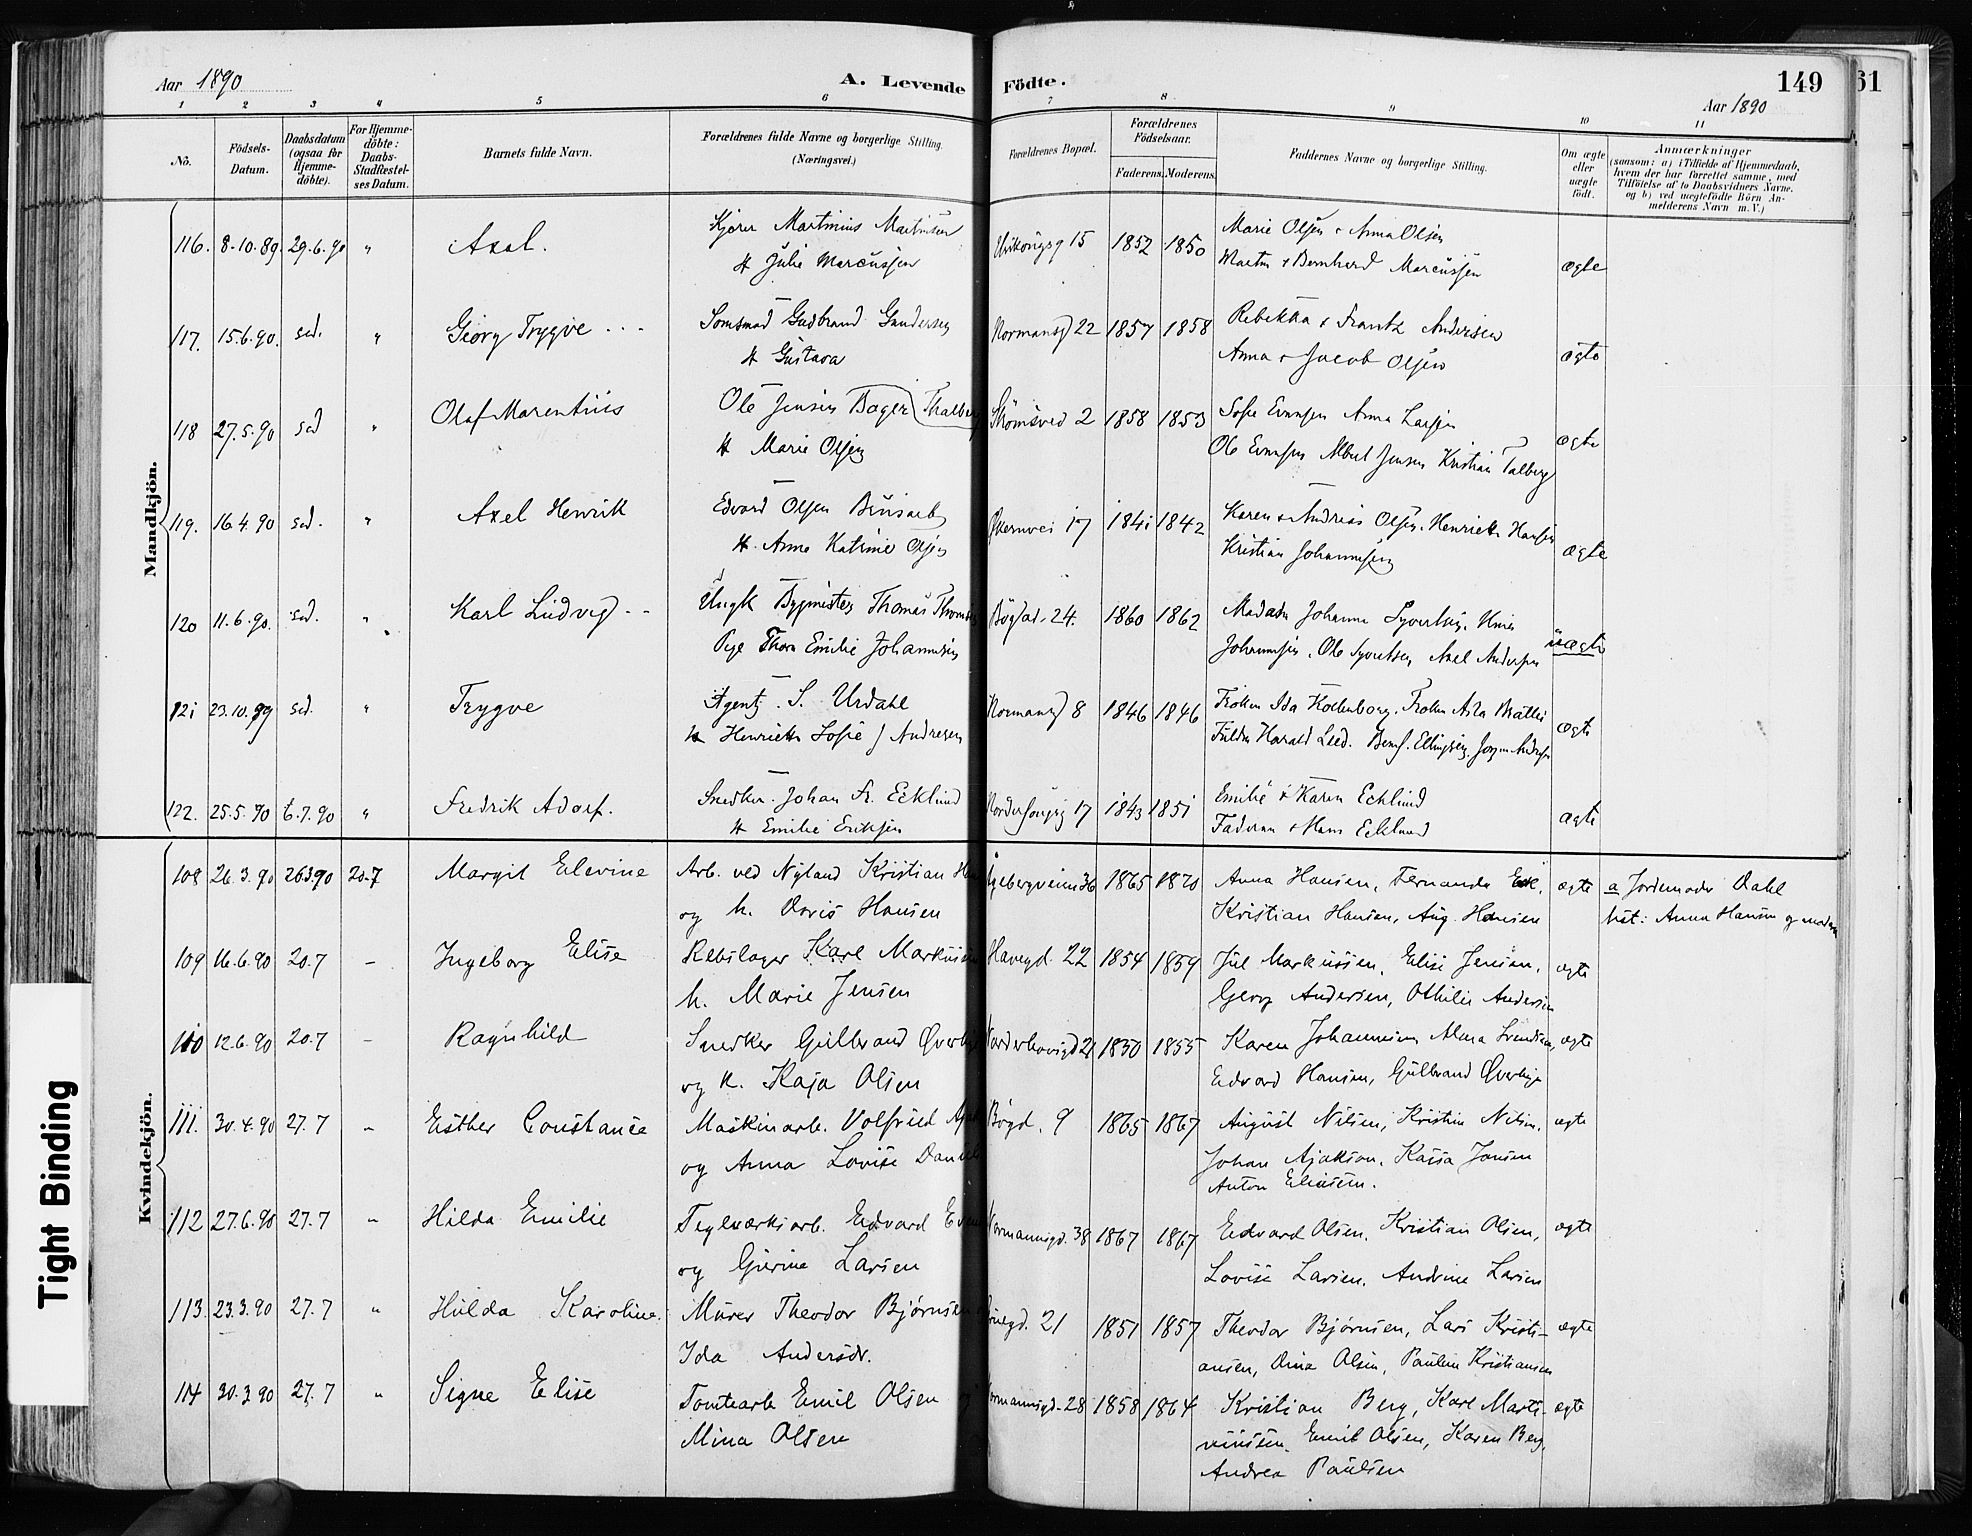 Aar 1890
A. Levende Födte.
149
61
Aar 1890
1 2 3 4 5 6 7 8 9 10 11
No.
Födsels-Datum.
Daabsdatum (ogsaa for Hjemme-döbte).
For Hjemme-döbte: Daabs-Stadfæstel-ses Datum.
Barnets fulde Navn.
Forældrenes fulde Navne og borgerlige Stilling.
(Næringsvei.)
Forældrenes Bopæl.
Forældrenes Födselsaar.
Faderens. Moderens.
Faddernes Navne og borgerlige Stilling.
Om ægte eller uægte födt.
Anmærkninger
(saasom: a) i Tilfælde af Hjemmedaab,
hvem der har forrettet samme, med
Tilföielse af to Daabsvidners Navne.
og b) ved uægtefödte Börn An-
melderens Navn m. V.)
Mandkjön.
116. 8.10.89. 29.6.90 " Axel. Martinius Martinsen 15 1852 1850 Marie Olsen + Anna Olsen
H Julie Marcussen Martin + Bernhard Marcussen ægte
117. 15.6.90. sd. " Georg Trygve Gudbrand Gundersen Normansg 22 1857 1858 Rebekka + Frantz Andersen
H Gustava Anna + Jacob Olsen ægte
118 27.5.90 sd " Olaf Marentius Ole Jensen Bager (Thalberg 2 1858 1853 Sofie Evensen Anna Larsen
H Marie Olsen Ole Evensen Albert Jensen Kristian Talberg ægte
119. 16.4.90 sd. " Axel Henrik Edvard Olsen 17 1841 1842 Karen + Andreas Olsen. Henriette Hansen
H. Anna Katrine Olsen Kristian Johannesen ægte
120 11.6.90. sd. " Karl Ludvig Ungk Bygmester Thomas 24. 1860 1862 Madam Johanne Syvertsen.
Pige Thora Emilie Johannesen Johannesen. Ole Syvertsen Axel Andersen uægte
121 23.10.89 sd. " Trygve Agent S. Urdahl Normansg 8 1846 1846 Frøken Ida
H Henriette Sofie Andresen Harald ægte
122. 25.5.90 6.7.90 " Fredrik Adorf. Snedker. Johan Fr. Ecklund 17 1843 1851 Emilie + Karen Ecklund
H Emilie Eriksen Faderen + Hans Ecklund ægte
Kvindekjön.
108 26.3.90 26.3.90 20.7 Margit Elevine Arb. ved Nyland Kristian 36 1865 1870 Anna Hansen, Fernanda Eek, ægte a Jordemoder Dahl
og h. Doris Hansen Kristian Hansen, Aug. Hansen Anna Hansen og moderen
109 16.6.90 20.7 – Ingeborg Elise Rebslager Karl Markussen Havegd. 22 1854 1859 Jul Markussen, Elise Jensen, ægte
h. Marie Jensen Georg Andersen, Othilie Andersen
110 12.6.90 20.7 – Ragnhild Snedker Gulbrand Øverbye Norderhovsgd 21 1850 1855 Karen Johannesen Alma Svendsen, ægte
og h. Kaja Olsen Edvard Hansen, Gulbrand Øverbye
111. 30.4.90 27.7 " Esther Constance Maskinarb. Volfried Bøgd. 9 1865 1867 August Nilsen, Kristine Nilsen, ægte
og Anna Lovise Johan Ajakson, Kaisa Jansen
Anton Eliasen.
112 27.6.90 27.7 " Hilda Emilie Teglværksarb. Edvard Normannsgd. 38 1867 1867 Edvard Olsen, Kristian Olsen, ægte
og Gurine Larsen Lovise Larsen, Andrine Larsen
113. 23.3.90 27.7 " Hulda Karoline Murer Theodor Bjørnsen 21 1851 1857 Theodor Bjørnsen, Lars Kristi- ægte
Ida Andersdr. ansen, Dina Olsen, Pauline Kristiansen
114 30.3.90 27.7 " Signe Elise Tomtearb Emil Olsen Normannsgd. 28 1858 1864 Kristian Berg, Karl Marti- ægte
Mina Olsen niussen, Emil Olsen, Karen Berg,
Andrea Paulsen
Tight Binding